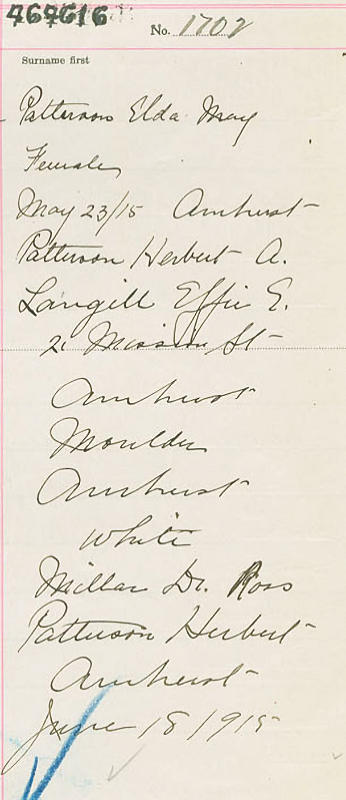 469616
No. 1702
Surname first
Patterson Elda May
Female
May 23/15 Amherst
Patterson Herbert A.
Langill Effie E.
21 Mission St
Amherst
Moulder
Amherst
White
Millar Dr. Ross
Patterson Herbert
Amherst
June 18 1915